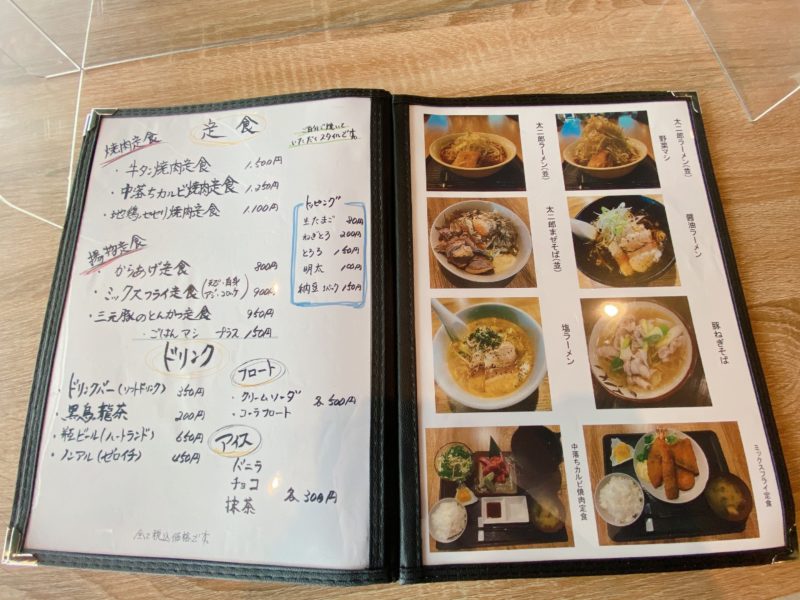 定食
自分で焼いて
いただくスタイルです。
焼肉定食
・牛タン焼肉定食 1,500円
・中落ちカルビ焼肉定食 1,250円
・地鶏セセリ焼肉定食 1,100円
トッピング
生たまご 80円
ねぎとろ 200円
とろろ 150円
明太 100円
納豆 1パック 150円
揚物定食
・からあげ定食 800円
・ミックスフライ定食(エビ・白身 アジ・コロッケ) 900円
・三元豚のとんかつ定食 950円
・ごはんマシ プラス150円
ドリンク
・ドリンクバー(ソフトドリンク) 350円
・黒烏龍茶 200円
・瓶ビール(ハートランド) 650円
・ノンアル(ゼロイチ) 450円
フロート
・クリームソーダ
・コーラフロート
各500円
アイス
バニラ
チョコ
抹茶
各300円
全て税込価格です
太二郎ラーメン(並)
太二郎ラーメン(並)
野菜マシ
太二郎まぜそば(並)
醤油ラーメン
塩ラーメン
豚ねぎそば
中落ちカルビ焼肉定食
ミックスフライ定食